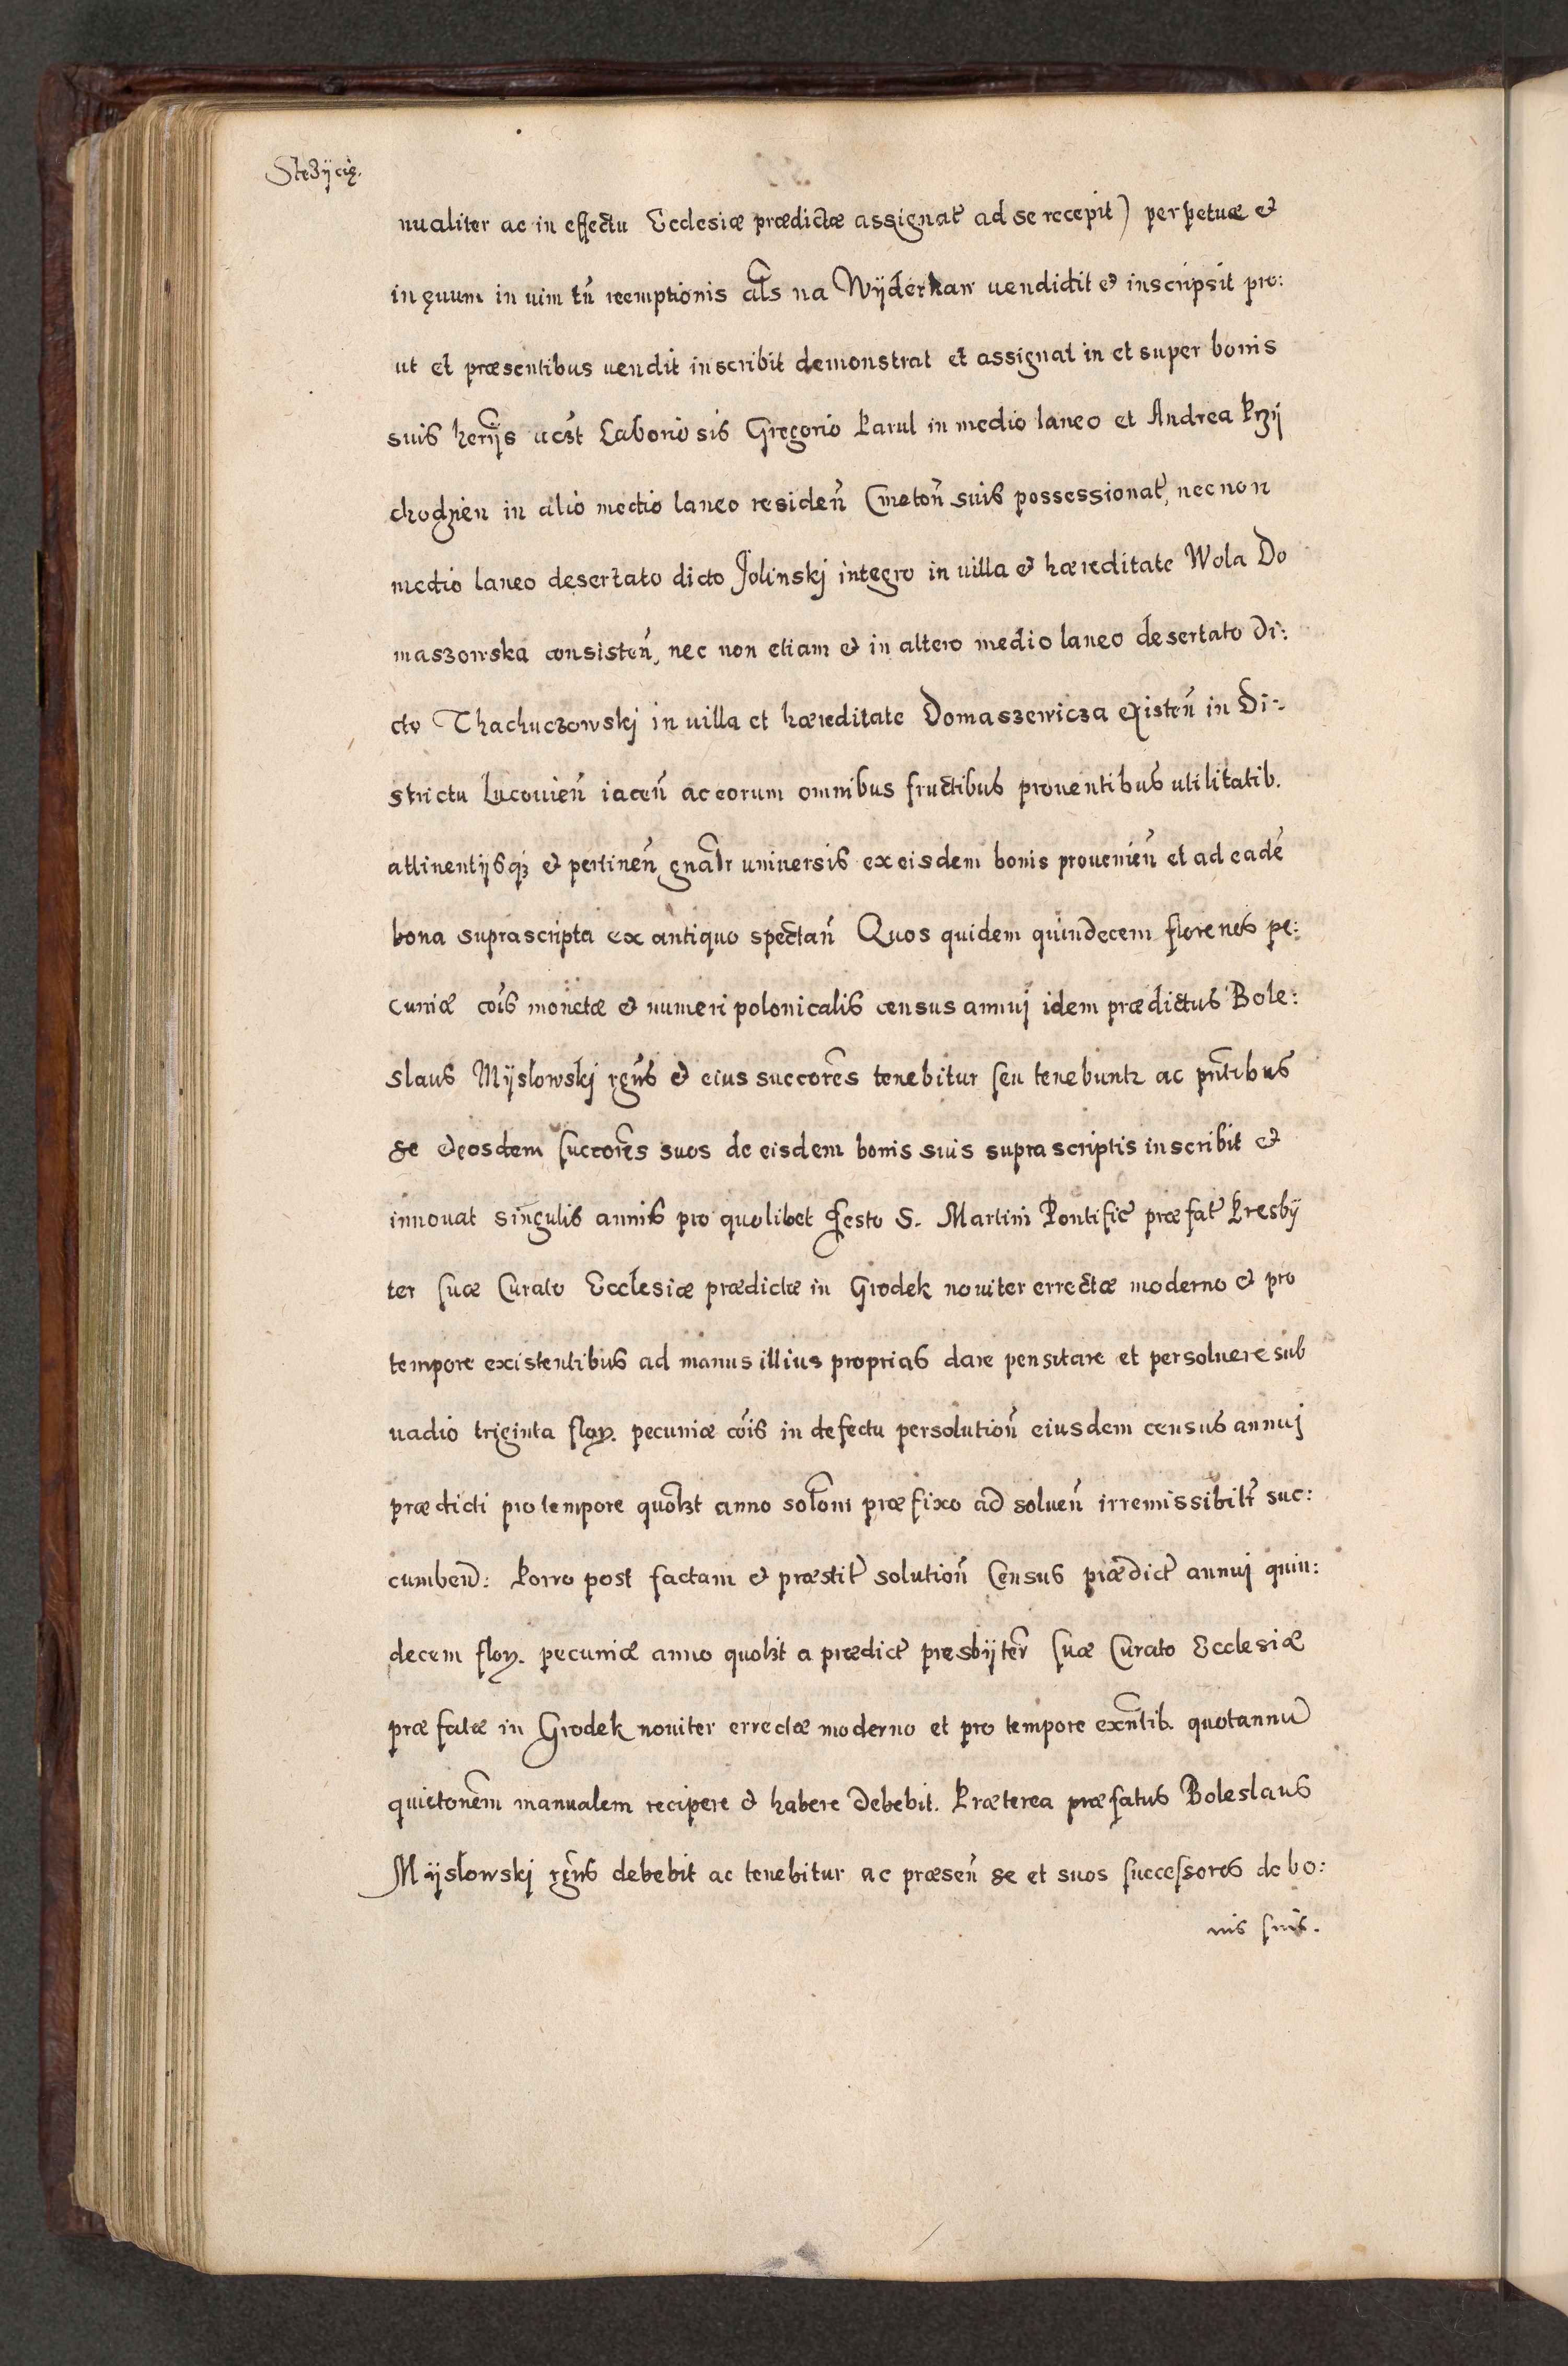 Stezÿcię.
nualiter ac in effectu Ecclesiæ prædictæ assignat̃ ad se recepit) perpetuæ et
in ęuum in uim tñ reemptionis als̃ na Wÿderkaw uendidit et inscripsit pro:
ut et præsentibus uendit inscribit demonstrat et assignat in et super bonis
suis herÿs ucz̃t Laboriosis Gregorio Parul in medio laneo et Andrea Przÿ
chodzien in alio medio laneo resideñ Cmetoñ suis possessionat̃, nec non
medio laneo desertato dicto Jolinskj integro in uilla et hæreditate Wola Do
maszowska consisteñ, nec non etiam et in altero medio laneo desertato Di:
cto Thachuczowskj in uilla et hæreditate Domaszewicza existeñ in Di:
strictu Lucouieñ iaceñ ac eorum omnibus fructibus prouentibus utilitatib.
attinentijsq₃ et pertineñ gnãlr uniuersis ex eisdem bonis prouenieñ et ad eadẽ
bona suprascripta ex antiquo spectañ Quos quidem quindecem florenos pe:
cuniæ cõis monetæ et numeri polonicalis census annuj idem prædictus Bole:
slaus Mÿslowskj rgñs et eius succorẽs tenebitur seu tenebuntz ac pñtibus
se et eosdem succorẽs suos de eisdem bonis suis suprascriptis inscribit et
innouat singulis annis pro quolibet festo S. Martini Pontific̃ præfat̃ Presbÿ
ter suæ Curato Ecclesiæ prædictæ in Grodek nouiter errectæ moderno et pro
tempore existentibus ad manus illius proprias dare pensitare et persoluere sub
uadio triginta floꝝ. pecuniæ cõis in defectu persolutioñ eiusdem census annuj
prædicti pro tempore quolz̃t anno solõni præfixo ad solueñ irremissibilr̃ suc:
cumbeñ: Porro post factam et præstit̃ solutioñ Census prædict̃ annuj quin:
decem floꝝ. pecuniæ anno quolz̃t a prædict̃ presbÿter̃ suæ Curato Ecclesiæ
præfatæ in Grodek nouiter errectæ moderno et pro tempore exñtib. quotannu
quietonẽm manualem recipere et habere debebit. Præterea præfatus Boleslaus
Mÿslowskj rgñs debebit ac tenebitur ac præseñ se et suos successores de bo:
nis suis.